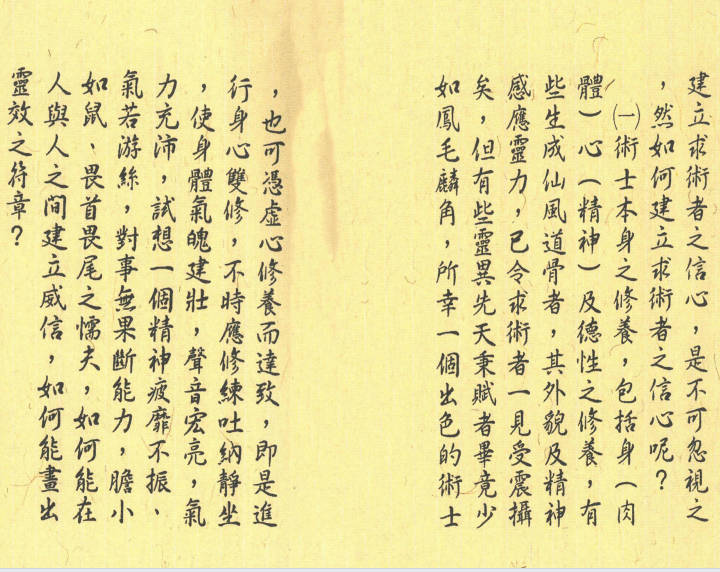 建立求術者之信心，是不可忽視之
，然如何建立求術者之信心呢？
㈠術士本身之修養，包括身（肉
體）心（精神）及德性之修養，有
些生成仙風道骨者，其外貌及精神
感應靈力，已令求術者一見受震攝
矣，但有些靈異先天秉賦者畢竟少
如鳳毛麟角，所幸一個出色的術士
，也可憑虛心修養而達致，即是進
行身心雙修，不時應修練吐納靜坐
，使身體氣魄建壯，聲音宏亮，氣
力充沛，試想一個精神疲靡不振、
氣若游絲，對事無果斷能力，膽小
如鼠、畏首畏尾之懦夫，如何能在
人與人之間建立威信，如何能畫出
靈效之符章？